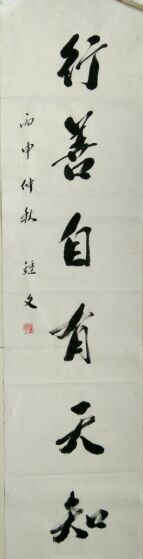 行善自有天知
丙申仲秋 鍾文